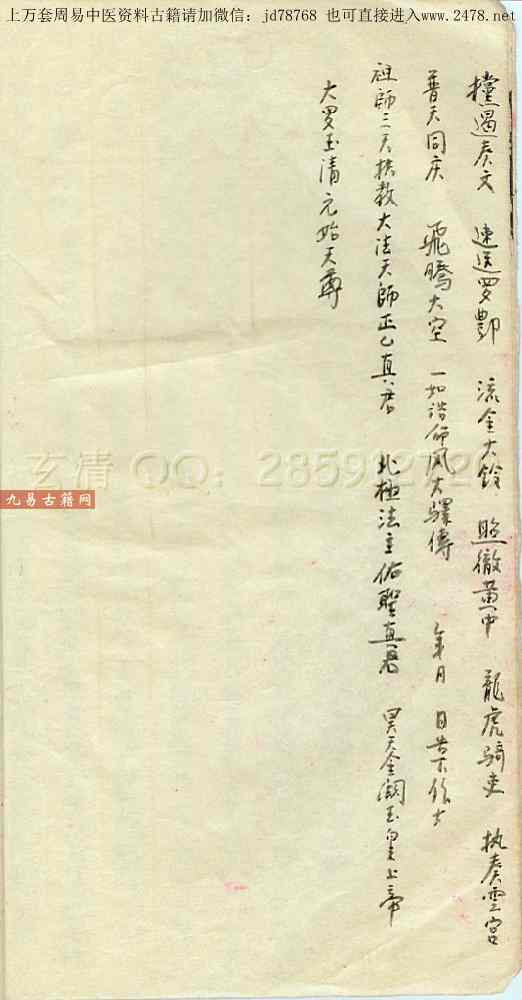 上万套周易中医资料古籍请加微信：jd78768 也可直接进入www.2478.net
攩遏奏文 速送罗酆 流金大铃 照徹黄中 龍虎騎吏 执奏雲宫
普天同庆 飛騰太空 一如誥命風火驛傳 年月 日告下
祖師三天扶教大法天師正乙真君 北極法主佑聖真君 昊天金闕玉皇上帝
大罗玉清元始天尊
玄清 QQ：285912726
九易古籍网